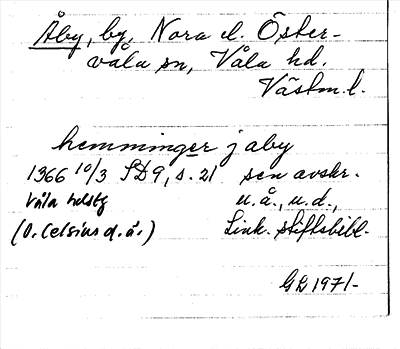 Åby, by, Nora el. Öster-
våla sn, Våla hd.
Västm. l.
hemminger j aby
1366 10/3 SD 9, s. 21 sen avskr.
Våla hdstg u.å., u.d.,
(O. Celsius d.ä.) Link. stiftsbibl.
GL 1971/-